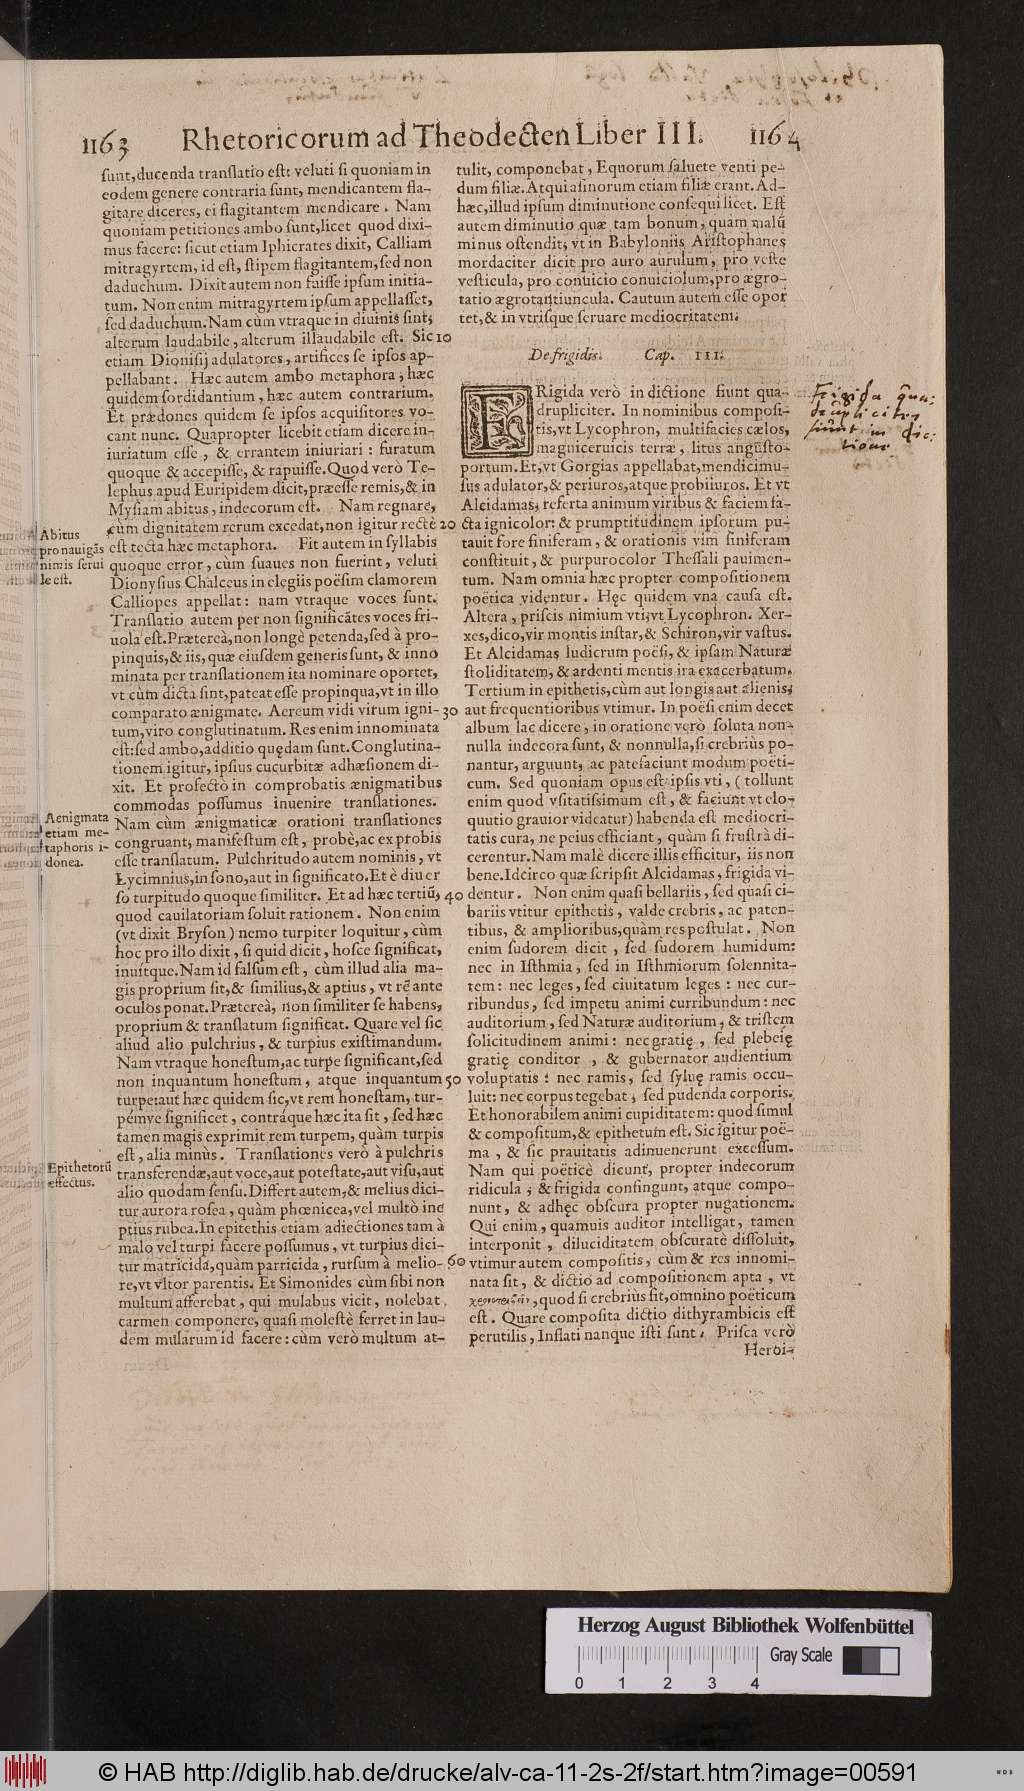 1163 Rhetoricorum ad Theodecten Liber III. 1164
ſunt, ducenda tranſlatio eſt: veluti ſi quoniam in
eodem genere contraria ſunt, mendicantem fla-
gitare diceres, ei flagitantem mendicare. Nam
quoniam petitiones ambo ſunt, licet quod dixi-
mus facere: ſicut etiam Iphicrates dixit, Calliam
mitragyrtem, id eſt, ſtipem flagitantem, ſed non
daduchum. Dixit autem non fuiſſe ipſum initia-
tum. Non enim mitragyrtem ipſum appellaſſet,
ſed daduchum. Nam cùm vtraque in diuinis ſint,
alterum laudabile, alterum illaudabile eſt. Sic 10
etiam Dioniſij adulatores, artifices ſe ipſos ap-
pellabant. Hæc autem ambo metaphora, hæc
quidem ſordidantium, hæc autem contrarium.
Et prædones quidem ſe ipſos acquiſitores vo-
cant nunc. Quapropter licebit etiam dicere in-
iuriatum eſſe, & errantem iniuriari: furatum
quoque & accepiſſe, & rapuiſſe. Quod verò Te-
lephus apud Euripidem dicit, præeſſe remis, & in
Myſiam abitus, indecorum eſt. Nam regnare,
cùm dignitatem rerum excedat, non igitur rectè 20
eſt tecta hæc metaphora. Fit autem in ſyllabis
quoque error, cùm ſuaues non fuerint, veluti
Dionyſius Chalceus in elegiis poëſim clamorem
Calliopes appellat: nam vtraque voces ſunt.
Tranſlatio autem per non ſignificātes voces fri-
uola eſt. Prætereà, non longè petenda, ſed à pro-
pinquis, & iis, quæ eiuſdem generis ſunt, & inno
minata per tranſlationem ita nominare oportet,
vt cùm dicta ſint, pateat eſſe propinqua, vt in illo
comparato ænigmate. Aereum vidi virum igni- 30
tum, viro conglutinatum. Res enim innominata
eſt: ſed ambo, additio quędam ſunt. Conglutina-
tionem igitur, ipſius cucurbitæ adhæſionem di-
xit. Et profectò in comprobatis ænigmatibus
commodas poſſumus inuenire tranſlationes.
Nam cùm ænigmaticæ orationi tranſlationes
congruant, manifeſtum eſt, probè, ac ex probis
eſſe tranſlatum. Pulchritudo autem nominis, vt
Lycimnius, in ſono, aut in ſignificato. Et è diuer
ſo turpitudo quoque ſimiliter. Et ad hæc tertiū, 40
quod cauilatoriam ſoluit rationem. Non enim
(vt dixit Bryſon) nemo turpiter loquitur, cùm
hoc pro illo dixit, ſi quid dicit, hoſce ſignificat,
inuítque. Nam id falſum eſt, cùm illud alia ma-
gis proprium ſit, & ſimilius, & aptius, vt rē ante
oculos ponat. Prætereà, non ſimiliter ſe habens,
proprium & tranſlatum ſignificat. Quare vel ſic
aliud alio pulchrius, & turpius exiſtimandum.
Nam vtraque honeſtum, ac turpe ſignificant, ſed
non inquantum honeſtum, atque inquantum 50
turpe: aut hæc quidem ſic, vt rem honeſtam, tur-
pémve ſignificet, contráque hæc ita ſit, ſed hæc
tamen magis exprimit rem turpem, quàm turpis
eſt, alia minùs. Tranſlationes verò à pulchris
transferendæ, aut voce, aut poteſtate, aut viſu, aut
alio quodam ſenſu. Differt autem, & melius dici-
tur aurora roſea, quàm phœnicea, vel multò ine
ptius rubea. In epitethis etiam adiectiones tam à
malo vel turpi facere poſſumus, vt turpius dici-
tur matricida, quàm parricida, rurſum à melio- 60
re, vt vltor parentis. Et Simonides cùm ſibi non
multum afferebat, qui mulabus vicit, nolebat
carmen componere, quaſi moleſtè ferret in lau-
dem mularum id facere: cùm verò multum at-
Abitus
pro nauigās
nimis ſerui
le eſt.
Aenigmata
etiam me-
taphoris i-
donea.
Epithetorū
effectus.
tulit, componebat, Equorum ſaluete venti pe-
dum filiæ. Atqui aſinorum etiam filiæ erant. Ad-
hæc, illud ipſum diminutione conſequi licet. Eſt
autem diminutio quæ tam bonum, quàm malū
minus oſtendit, vt in Babyloniis Ariſtophanes
mordaciter dicit pro auro aurulum, pro veſte
veſticula, pro conuicio conuiciolum, pro ægro-
tatio ægrotantiuncula. Cautum autem eſſe opor
tet, & in vtriſque ſeruare mediocritatem.
De frigidis. Cap. III.
FRigida verò in dictione fiunt qua-
drupliciter. In nominibus compoſi-
tis, vt Lycophron, multifacies cælos,
magniceruicis terræ, litus anguſto-
portum. Et, vt Gorgias appellabat, mendicimu-
ſus adulator, & periuros, atque probiiuros. Et vt
Alcidamas, referta animum viribus & faciem fa-
cta ignicolor: & prumptitudinem ipſorum pu-
tauit fore finiferam, & orationis vim finiferam
conſtituit, & purpurocolor Theſſali pauimen-
tum. Nam omnia hæc propter compoſitionem
poëtica videntur. Hęc quidem vna cauſa eſt.
Altera, priſcis nimium vti, vt Lycophron. Xer-
xes, dico, vir montis inſtar, & Schiron, vir vaſtus.
Et Alcidamas ludicrum poëſi, & ipſam Naturæ
ſtoliditatem, & ardenti mentis ira exacerbatum.
Tertium in epithetis, cùm aut longis aut alienis,
aut frequentioribus vtimur. In poëſi enim decet
album lac dicere, in oratione verò ſoluta non-
nulla indecora ſunt, & nonnulla, ſi crebriùs po-
nantur, arguunt, ac patefaciunt modum poëti-
cum. Sed quoniam opus eſt ipſis vti, (tollunt
enim quod vſitatiſsimum eſt, & faciunt vt elo-
quutio grauior videatur) habenda eſt mediocri-
tatis cura, ne peius efficiant, quàm ſi fruſtrà di-
cerentur. Nam malè dicere illis efficitur, iis non
bene. Idcirco quæ ſcripſit Alcidamas, frigida vi-
dentur. Non enim quaſi bellariis, ſed quaſi ci-
bariis vtitur epithetis, valde crebris, ac paten-
tibus, & amplioribus, quàm res poſtulat. Non
enim ſudorem dicit, ſed ſudorem humidum:
nec in Iſthmia, ſed in Iſthmiorum ſolennita-
tem: nec leges, ſed ciuitatum leges: nec cur-
ribundus, ſed impetu animi curribundum: nec
auditorium, ſed Naturæ auditorium, & triſtem
ſolicitudinem animi: nec gratię, ſed plebeię
gratię conditor, & gubernator audientium
voluptatis: nec ramis, ſed ſyluę ramis occu-
luit: nec corpus tegebat, ſed pudenda corporis.
Et honorabilem animi cupiditatem: quod ſimul
& compoſitum, & epithetum eſt. Sic igitur poë-
ma, & ſic prauitatis adinuenerunt exceſſum.
Nam qui poëticè dicunt, propter indecorum
ridicula, & frigida confingunt, atque compo-
nunt, & adhęc obſcura propter nugationem.
Qui enim, quamuis auditor intelligat, tamen
interponit, diluciditatem obſcuratè diſſoluit,
vtimur autem compoſitis, cùm & res innomi-
nata ſit, & dictio ad compoſitionem apta, vt
, quod ſi crebriùs ſit, omnino poëticum
eſt. Quare compoſita dictio dithyrambicis eſt
perutilis, Inflati nanque iſti ſunt. Priſca verò
Heroi-
Frigida qua-
drupliciter
fiunt in dic-
tione
Herzog August Bibliothek Wolfenbüttel
Gray Scale
0 1 2 3 4
© HAB http://diglib.hab.de/drucke/alv-ca-11-2s-2f/start.htm?image=00591